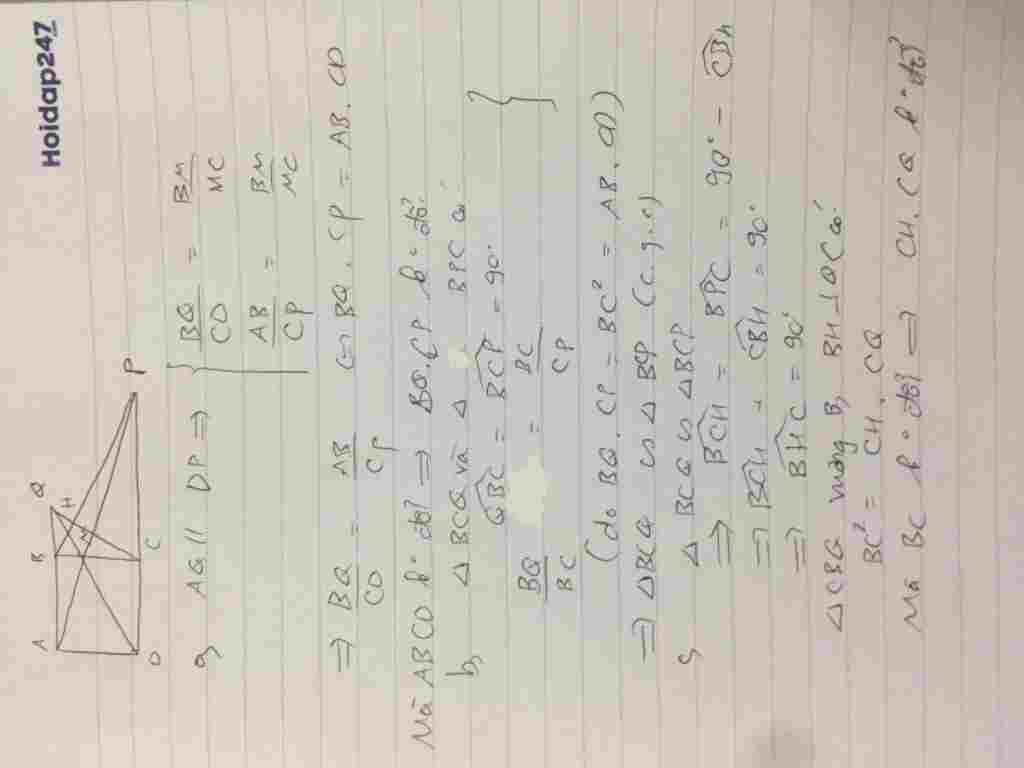 Hoidap247
A B Q
H
M
D C P
a, AQ // DP ⇒ { BQ/CD = BM/MC
AB/CP = BM/MC
⇒ BQ/CD = AB/CP ⇔ BQ . CP = AB . CD
Mà ABCD k° đổi ⇒ BQ . CP k° đổi.
b, △ BCQ và △ BPC có
QBC = BCP = 90°
BQ/BC = BC/CP }
(do BQ . CP = BC² = AB . CD)
⇒ △BCQ ∽ △ BCP (c.g.c)
c, △ BCQ ∽ △ BCP
⇒ BCH = BPC = 90° - CBH
⇒ BCH + CBH = 90°
⇒ BHC = 90°
△ CBQ vuông B, BH ⊥ QC có
BC² = CH . CQ
Mà BC k° đổi ⇒ CH . CQ k° đổi